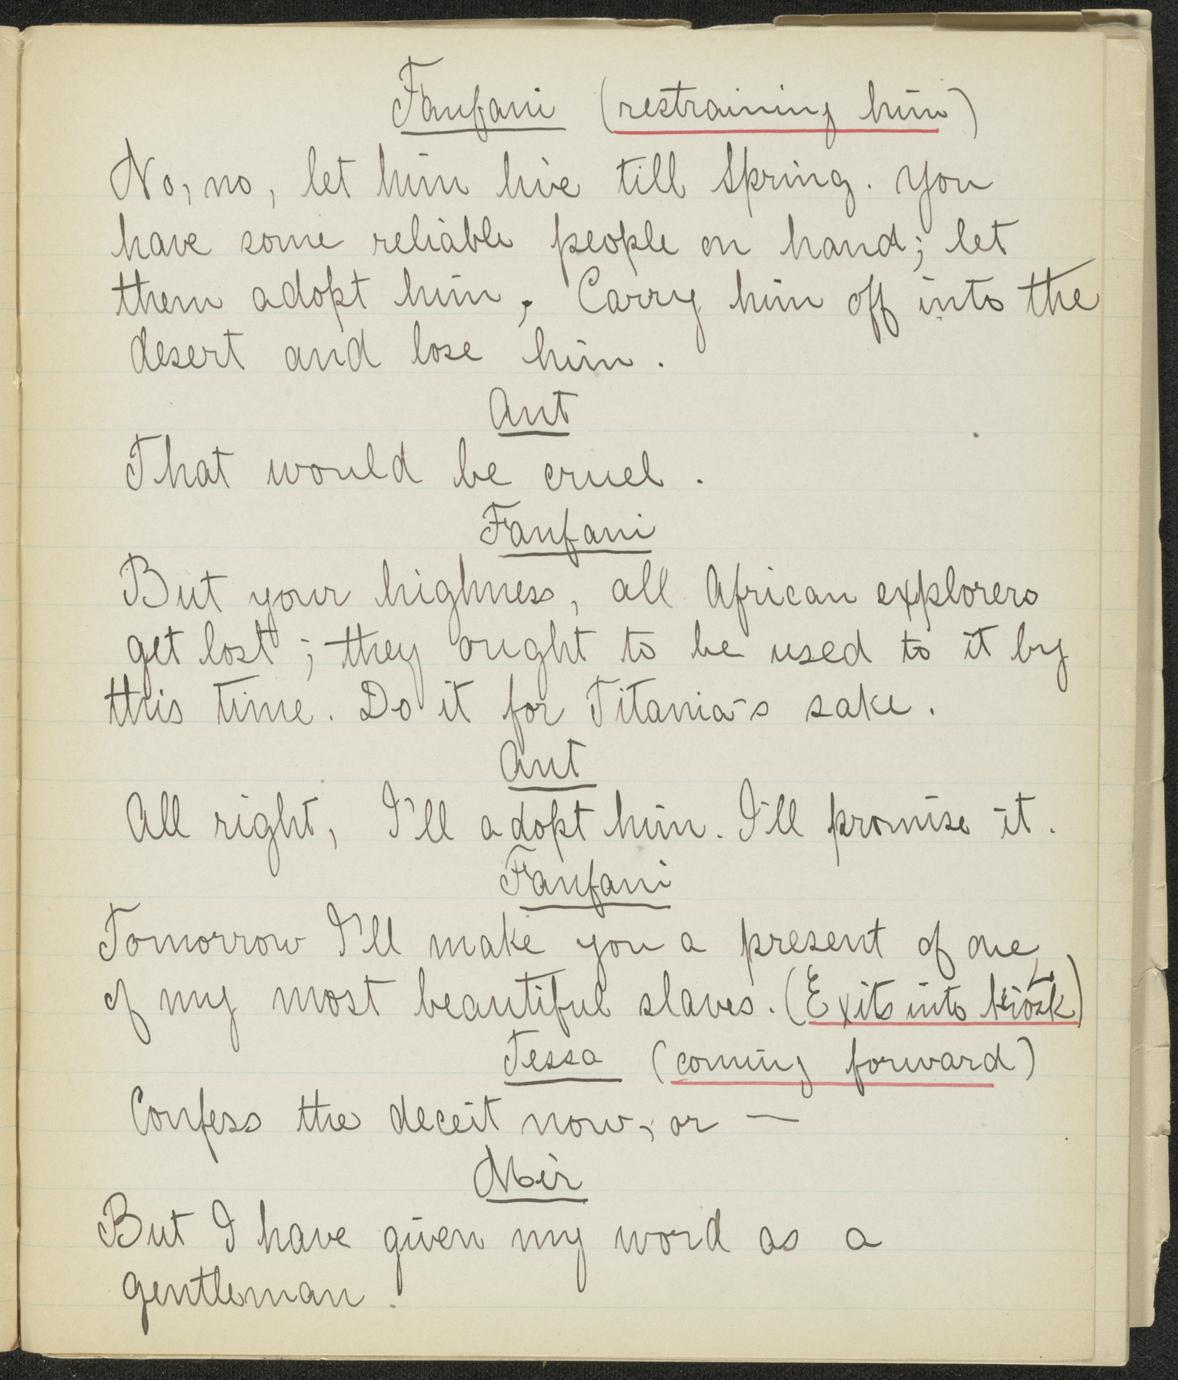 Fanfani (restraining him)
No, no, let him live till Spring. You
have some reliable people on hand; let
them adopt him, Carry him off into the
desert and lose him.
Ant
That would be cruel.
Fanfani
But your highness, all African explorers
get lost; they ought to be used to it by
this time. Do it for Titania's sake.
Ant
All right, I'll adopt him. I'll promise it.
Fanfani
Tomorrow I'll make you a present of one
of my most beautiful slaves. (Exits into kiosk)
Tessa (coming forward)
Confess the deceit now, or —
Mir
But I have given my word as a
gentleman.